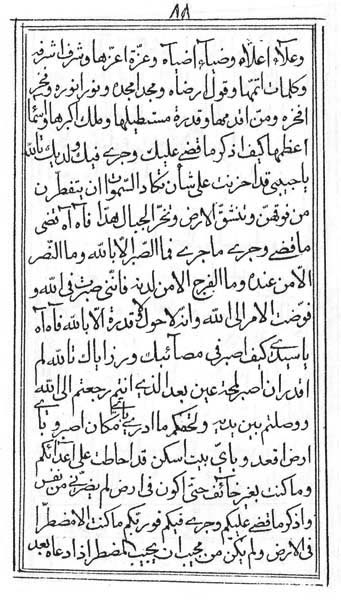 ٨٨
وعلآء اعلاه وضيآء اضيآه وعزة اعزها وشرف اشرفه
وكلمات اتمها وقول ارضاه ومجد امجده ونور انوره وفخر
افخره ومن اقدمها وقدرة مستطيلها وملك اكبرها واسمآء
اعظمها كيف اذكر ما قضى عليك وجرى فيك ولديك تالله
يا حبيبى قد احزنت على شأن تكاد السموات ان يتفطرن
من فوقهن وتنشق الارض وتخر الجبال هذا فآه آه تقضى
ما قضى وجرى ما جرى فما الصبر الا بالله وما النصر
الا من عنده وما الفرج الا من لديه فاننى صبرت فى الله و
فوضت الامر الى الله وانه لا حول ولا قدرة الا بالله فآه آه
يا سيدى كيف اصبر فى مصآئبك ورزاياك تالله لم
اقدر ان اصبر لمجدعين بعد الذى انتم رجعتم الى الله
ووصلتم بين يديه ولحقكم ما ادرى باى مكان اصر وباى
ارض اقعد وباى بيت اسكن قد احاطت على اعدآئكم
وما كنت بغير خآئف حتى اكون فى ارض لم يضرنى من نفس
واذكر ما قضى عليكم وجرى فيكم فوربكم ما كنت الا مضطرا
فى الارض ولم يكن من مجيب ان يجيب المضطر اذا دعاه بعد